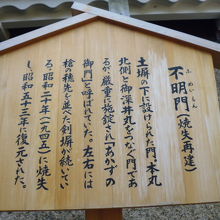 不明門(焼失再建)
ふめいもん
土塀の下に設けられた門。本丸
北側と御深井丸をつなぐ門であ
るが、厳重に施錠され「あかずの
御門」と呼ばれていた。左右には
槍の穂先を並べた剣塀が続いてい
る。昭和二十年(一九四五)に焼失
し、昭和五十三年に復元された。